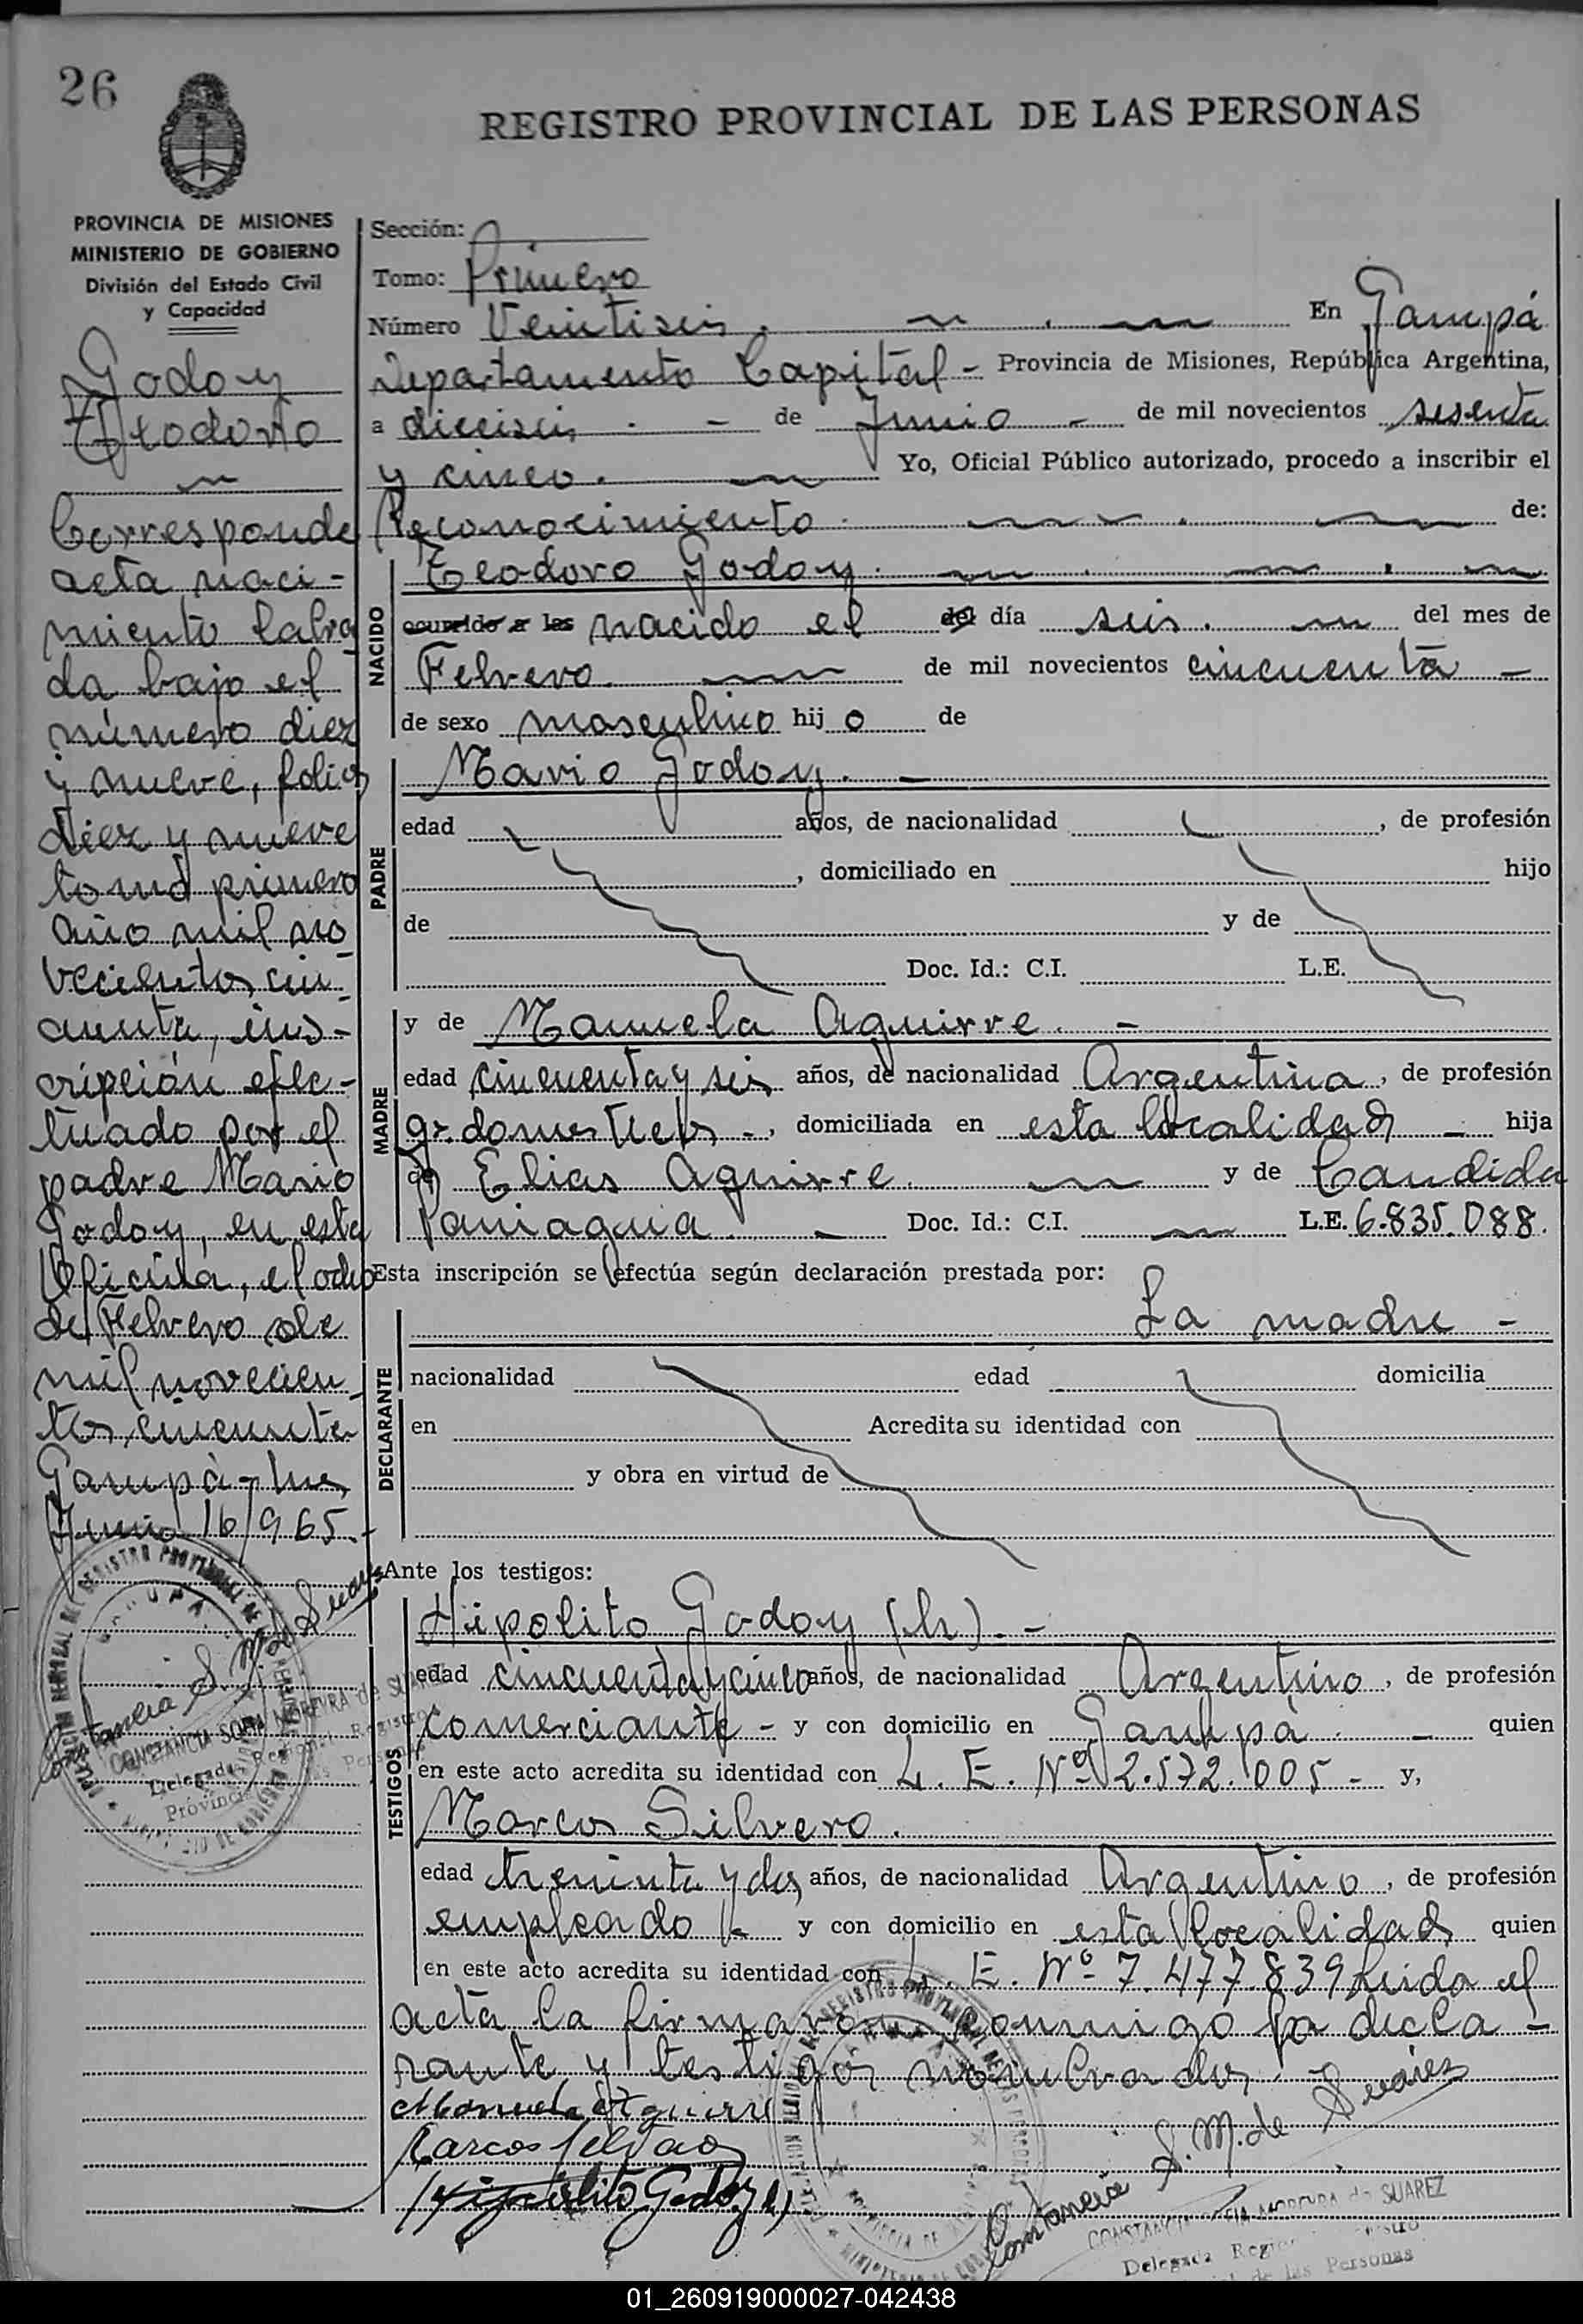 26
REGISTRO PROVINCIAL DE LAS PERSONAS
PROVINCIA DE MISIONES
MINISTERIO DE GOBIERNO
División del Estado Civil
y Capacidad
Godoy
Teodoro
Corresponde
acta naci-
miento labra
da bajo el
número diez
y nueve, folio
diez y nueve
tomo primero
año mil no
vecientos cin-
cuenta, ins-
cripción efec-
tuado por el
padre Mario
Godoy, en esta
Oficina, el ocho
de Febrero de
mil novecien
tos cincuenta
Garupá - Mnes
Junio 16/965.-
Constancia S. M. de Suarez
CONSTANCIA SOFIA MOREYRA de SUAREZ
Delegada Regional Registro
Provincial de las Personas
Sección:
Tomo: Primero
Número Veintiseis. En Garupá
Departamento Capital - Provincia de Misiones, República Argentina,
a dieciseis - de Junio - de mil novecientos sesenta
y cinco. Yo, Oficial Público autorizado, procedo a inscribir el
Reconocimiento de:
NACIDO
Teodoro Godoy.
ocurrido a las nacido el del día seis. del mes de
Febrero. de mil novecientos cincuenta -
de sexo masculino hijo de
PADRE
Mario Godoy. -
edad años, de nacionalidad , de profesión
, domiciliado en hijo
de y de
Doc. Id.: C.I. L.E.
MADRE
y de Manuela Aguirre. -
edad cincuenta y seis años, de nacionalidad Argentina, de profesión
q. domesticos -, domiciliada en esta localidad - hija
de Elias Aguirre. y de Candida
Paniagua. - Doc. Id.: C.I. L.E. 6.835.088.
Esta inscripción se efectúa según declaración prestada por:
DECLARANTE
La madre -
nacionalidad edad domicilia
en Acredita su identidad con
y obra en virtud de
Ante los testigos:
TESTIGOS
Hipolito Godoy (h). -
edad cincuenta y cinco años, de nacionalidad Argentino, de profesión
comerciante - y con domicilio en Garupá. - quien
en este acto acredita su identidad con L. E. Nº 2.572.005 - y,
Marcos Silvero.
edad treinta y dos años, de nacionalidad Argentino, de profesión
empleado y con domicilio en esta localidad quien
en este acto acredita su identidad con L. E. Nº 7.477.839 Leida el
acta la firmaron conmigo la decla-
rante y testigos nombrados. -
Manuela Aguirre
Marcos Silvero
Hipolito Godoy (h)
Constancia S. M. de Suárez
CONSTANCIA SOFIA MOREYRA de SUAREZ
Delegada Regional Registro
de las Personas
01_260919000027-042438